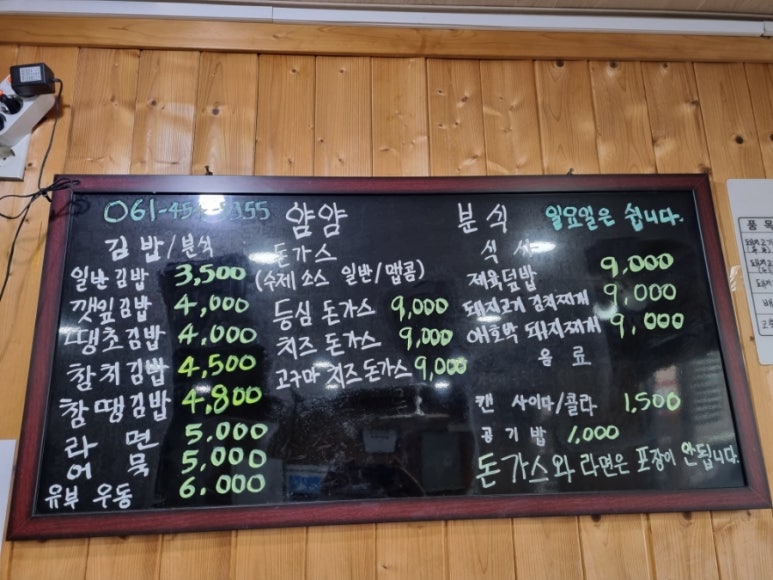 얌얌 분식 일요일은 쉽니다.
김밥/분식
일반김밥 3,500
깻잎김밥 4,000
땡초김밥 4,000
참치김밥 4,500
참땡김밥 4,800
라면 5.000
어묵 5.000
유부 우동 6.000
돈가스
(수제 소스 일반/맵콤)
등심 돈가스 9,000
치즈 돈가스 9,000
고구마 치즈돈가스 9,000
식사
제육덮밥 9,000
돼지고기 김치찌개 9,000
애호박 돼지찌개 9,000
음료
캔 사이다/콜라 1.500
공기밥 1,000
돈가스와 라면은 포장이 안됩니다.
품목